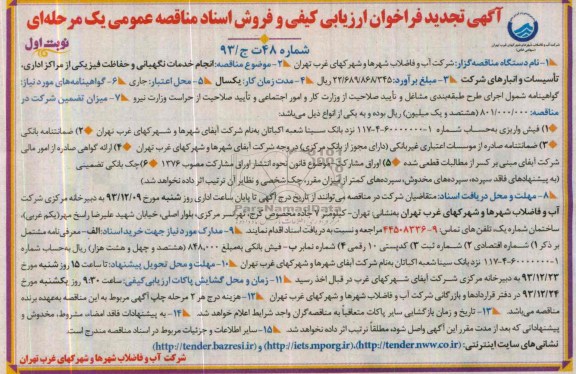 آگهی تجدید فراخوان ارزیابی کیفی و فروش اسناد مناقصه عمومی یک مرحله‌ای
شماره ۴۸ت ج/۹۳
نوبت اول
۱- نام دستگاه مناقصه‌گزار: شرکت آب و فاضلاب شهرها و شهرکهای غرب تهران ۲- موضوع مناقصه: انجام خدمات نگهبانی و حفاظت فیزیکی از مراکز اداری،
تأسیسات و انبارهای شرکت ۳- مبلغ برآورد: ۲۲/۶۸۹/۸۶۸/۳۴۵ ریال ۴- مدت زمان کار: یکسال ۵- محل اعتبار: جاری ۶- گواهینامه‌های مورد نیاز:
گواهینامه شمول اجرای طرح طبقه‌بندی مشاغل و تأیید صلاحیت از وزارت کار و امور اجتماعی و تأیید صلاحیت از حراست وزارت نیرو ۷- میزان تضمین شرکت در
مناقصه: ۸۰۱/۰۰۰/۰۰۰ (هشتصد و یک میلیون) ریال بوده و به یکی از انواع ذیل می‌باشد:
۱) فیش واریزی به‌حساب شماره ۱-۱۱۷-۴-۶۰۰۰۰۰۰۰ نزد بانک سینا شعبه اکباتان به‌نام شرکت آبفای شهرها و شهرکهای غرب تهران ۲) ضمانتنامه بانکی
۳) ضمانتنامه صادره از موسسات اعتباری غیربانکی (دارای مجوز از بانک مرکزی) در وجه شرکت آبفای شهرها و شهرکهای غرب تهران ۴) ارائه گواهی صادره از امور مالی
شرکت آبفای مبنی بر کسر از مطالبات قطعی شده ۵) اوراق مشارکت موضوع قانون نحوه انتشار اوراق مشارکت مصوب ۱۳۷۶ ۶) چک بانکی تضمینی
(به پیشنهادهای فاقد سپرده، سپرده‌های مخدوش، سپرده‌های کمتر از میزان مقرر، چک شخصی و نظایر آن ترتیب اثر داده نخواهد شد.)
۸- مهلت و محل دریافت اسناد: متقاضیان شرکت در مناقصه می‌توانند از تاریخ درج آگهی تا پایان ساعت اداری روز شنبه مورخ ۹۳/۱۲/۰۹ به دبیرخانه مرکزی شرکت
آب و فاضلاب شهرها و شهرکهای غرب تهران به‌نشانی تهران- کیلومتر ۷ جاده مخصوص کرج، تهرانسر مرکزی، بلوار اصلی، خیابان شهید علیرضا راسخ مهر (یکم غربی)،
ساختمان شماره یک، تلفن‌های تماس: ۹-۴۴۵۰۸۳۳۶ مراجعه و نسبت به دریافت اسناد اقدام نمایند. ۹- مدارک مورد نیاز جهت خرید اسناد: الف- معرفی‌نامه مشتمل
بر ذکر ۱) شماره اقتصادی ۲) شماره ثبت ۳) کدپستی ۱۰ رقمی ۴) شماره نمابر ب- فیش بانکی به‌مبلغ ۸۴۸,۰۰۰ (هشتصد و چهل و هشت هزار) ریال به‌حساب شماره
۱-۱۱۷-۴-۶۰۰۰۰۰۰۰ نزد بانک سینا شعبه اکباتان به‌نام شرکت آبفای شهرها و شهرکهای غرب تهران ۱۰- مهلت و محل تحویل پیشنهاد: تا ساعت ۱۵ روز شنبه مورخ
۹۳/۱۲/۲۳ به دبیرخانه مرکزی شرکت آبفای شهرکهای غرب در قبال اخذ رسید ۱۱- زمان و محل گشایش پاکات ارزیابی کیفی: ساعت ۹:۳۰ روز یکشنبه مورخ
۹۳/۱۲/۲۴ در دفتر قراردادها و بازرگانی شرکت آب و فاضلاب شهرها و شهرکهای غرب تهران ۱۲- هزینه درج هر ۲ مرحله چاپ آگهی مربوط به این مناقصه به‌عهده برنده
مناقصه می‌باشد. ۱۳- تاریخ و زمان بازگشایی سایر پاکات متعاقباً به مناقصه‌گران واجد شرایط اعلام خواهد شد. ۱۴- به پیشنهادات فاقد امضاء، مشروط، مخدوش و
پیشنهاداتی که بعد از مدت مقرر این آگهی واصل شود، مطلقاً ترتیب اثر داده نخواهد شد. ۱۵- سایر اطلاعات و جزئیات مربوط در اسناد مناقصه مندرج است.
نشانی‌های سایت اینترنتی: (http://tender.nww.co.ir)، (http://iets.mporg.ir) و (http://tender.bazresi.ir)
شرکت آب و فاضلاب شهرها و شهرکهای غرب تهران